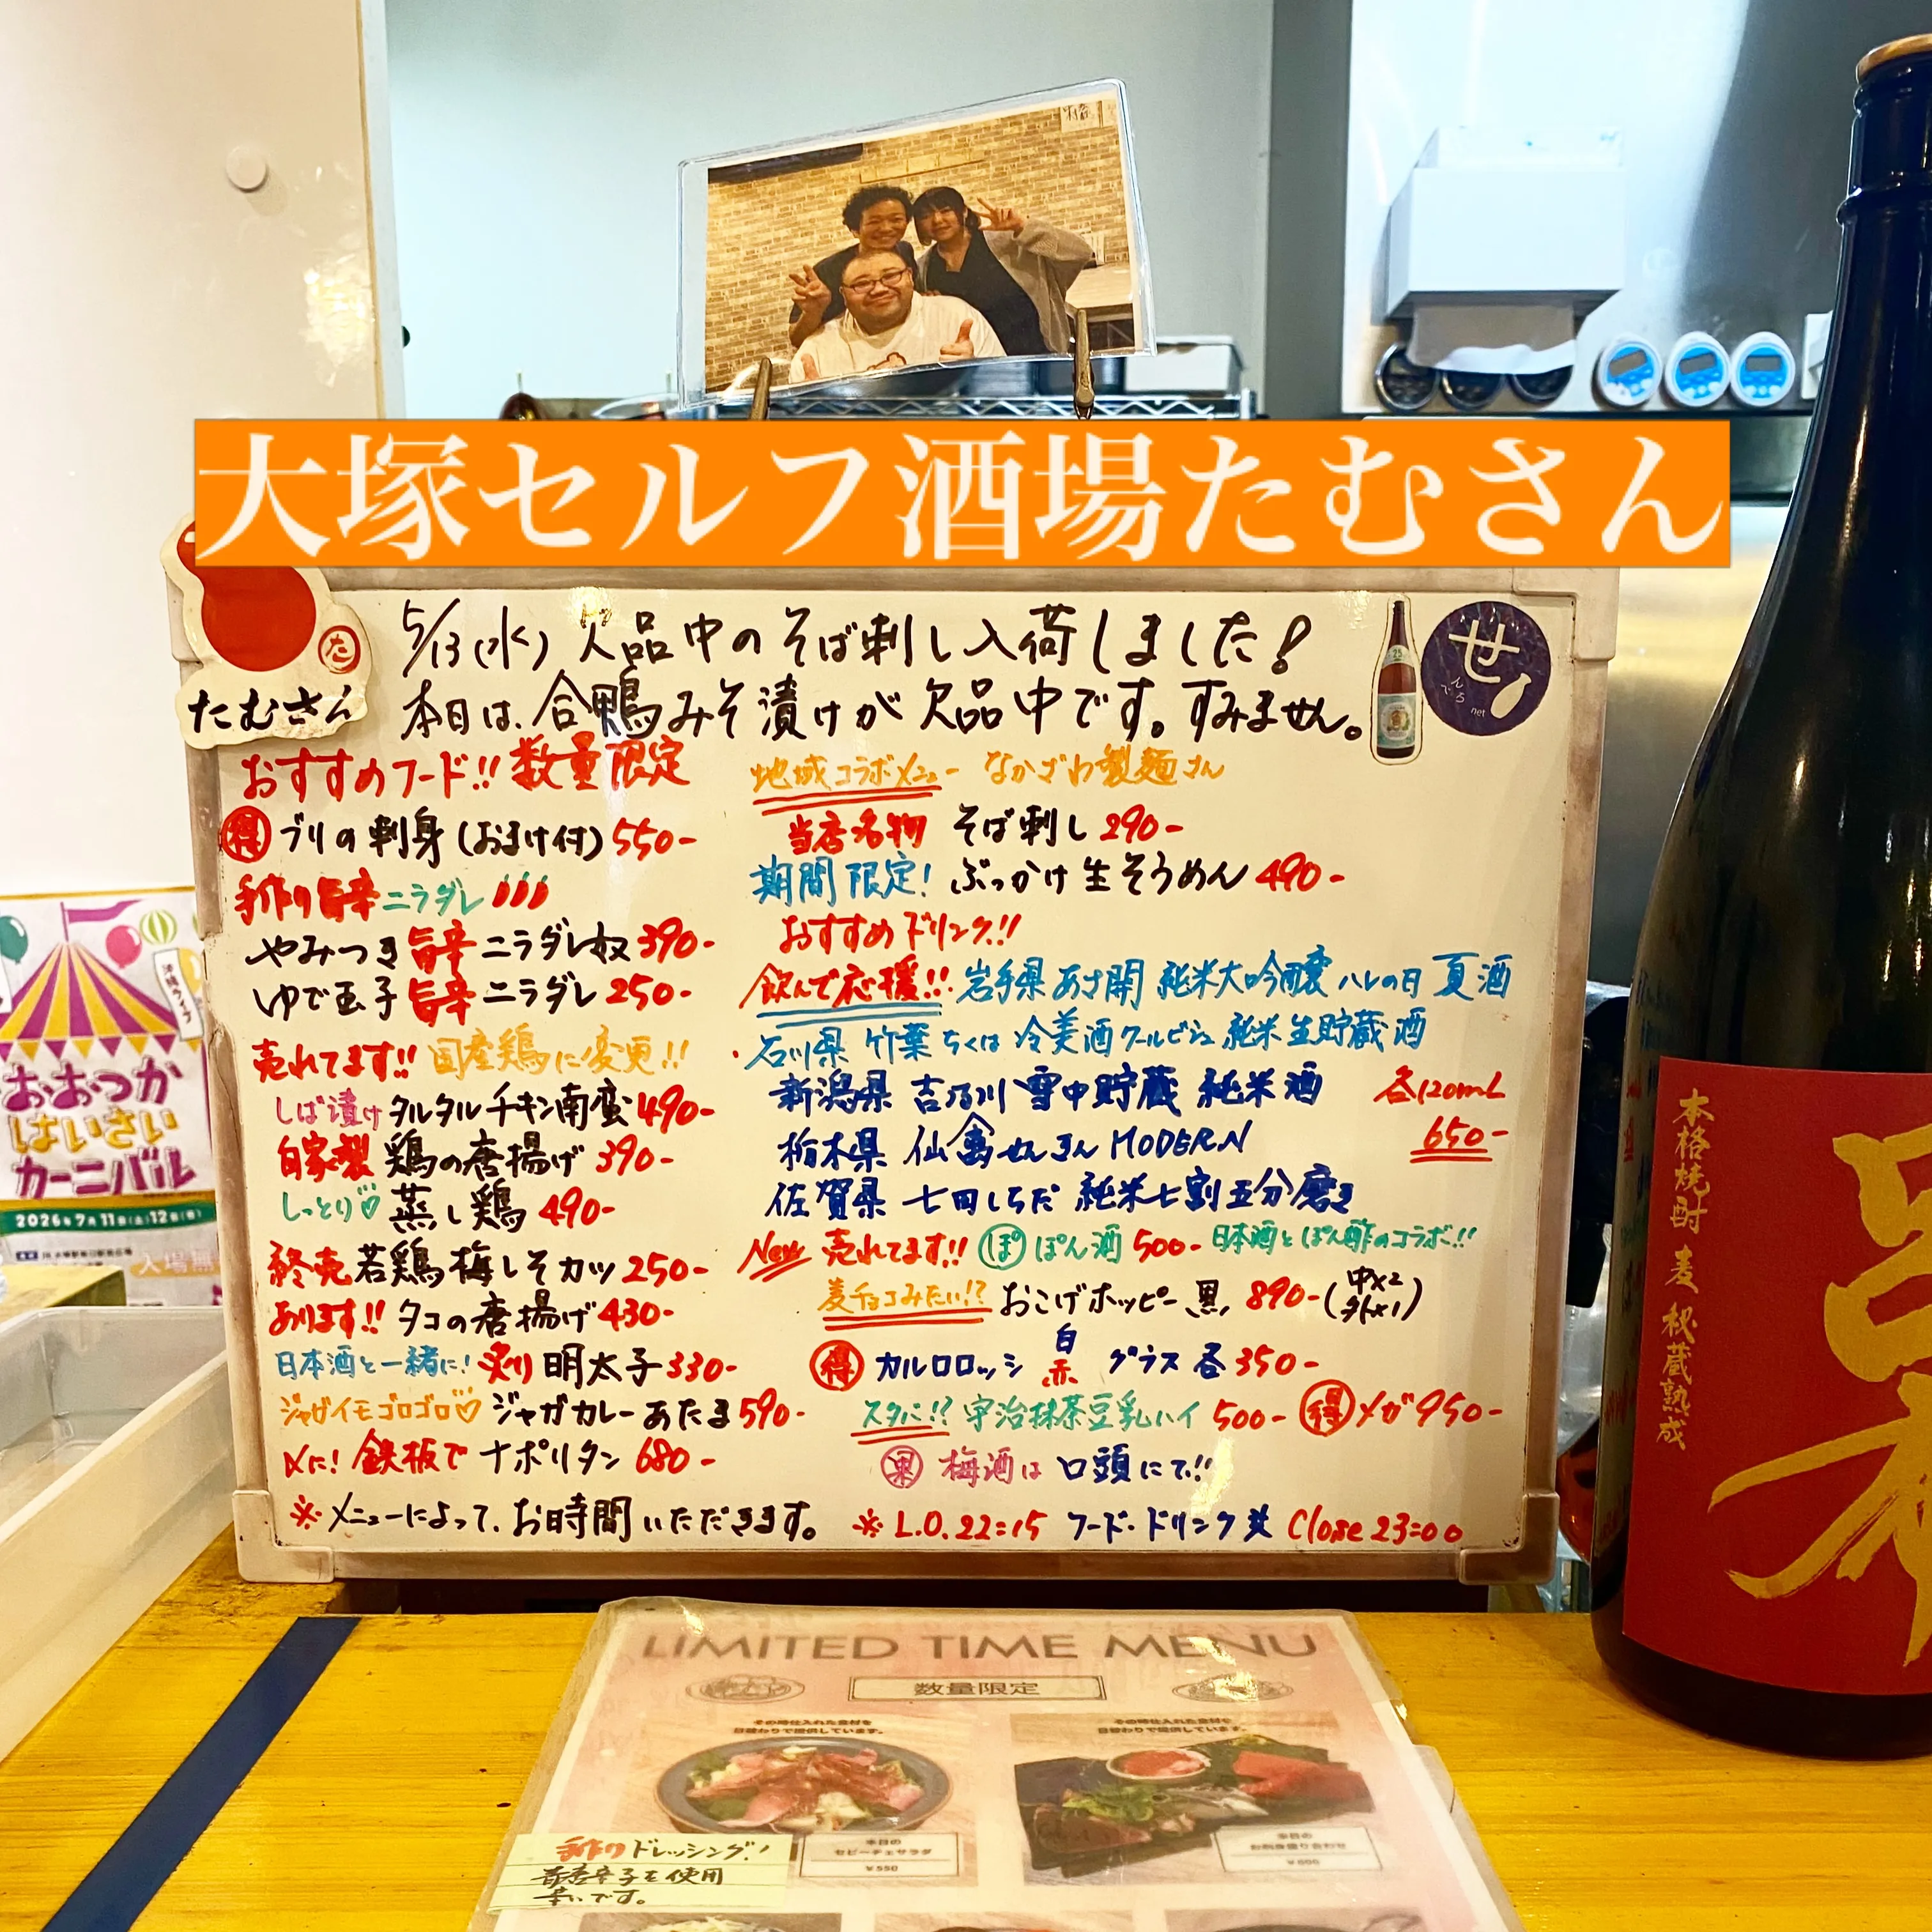 大塚セルフ酒場たむさん
た
たむさん
5/13(水) 欠品中のそば刺し入荷しました!
本日は、合鴨みそ漬けが欠品中です。すみません。
せ
んべろ
net
おすすめフード!! 数量限定
得 ブリの刺身 (おまけ付) 550-
手作り旨辛ニラダレ
やみつき旨辛ニラダレ奴 390-
ゆで玉子 旨辛 ニラダレ 250-
売れてます!! 国産鶏に変更!!
しば漬け タルタルチキン南蛮 490-
自家製 鶏の唐揚げ 390-
しっとり♡ 蒸し鶏 490-
終売 若鶏梅しそカツ 250-
あります!! タコの唐揚げ 430-
日本酒と一緒に! 炙り 明太子 330-
ジャガイモゴロゴロ♡ ジャガカレーあたま 590-
〆に! 鉄板で ナポリタン 680-
※メニューによって、お時間いただきます。
地域コラボメニュー なかざわ製麺さん
当店名物 そば刺し 290-
期間限定! ぶっかけ生そうめん 490-
おすすめドリンク!!
飲んで応援!! 岩手県 あさ開 純米大吟醸 ハレの日 夏酒
石川県 竹葉 ちくは 冷美酒 クールビシュ 純米生貯蔵酒
新潟県 吉乃川 雪中貯蔵 純米酒
栃木県 仙禽 せんきん MODERN
佐賀県 七田 しちだ 純米七割五分磨き
各120mL
650-
New 売れてます!! ぽ ぽん酒 500- 日本酒とぽん酢のコラボ!!
麦チョコみたい!? おこげホッピー黒 890- (中×2 外×1)
得 カルロロッシ 白 赤 グラス 各 350-
スタバ!? 宇治抹茶豆乳ハイ 500- 得 メガ 950-
果 梅酒は 口頭にて!!
※L.O.22:15 フード・ドリンク共 Close 23:00
おおつか
はいさい
カーニバル
2026年7月11日(土)12日(日)
本格焼酎 麦 秘蔵熟成
LIMITED TIME MENU
数量限定
その時仕入れた食材を
日替わりで提供しています。
その時仕入れた食材を
日替わりで提供しています。
本日の
セビーチェサラダ
¥550
本日の
お刺身盛り合わせ
手作りドレッシング!
青唐辛子を使用
辛いです。